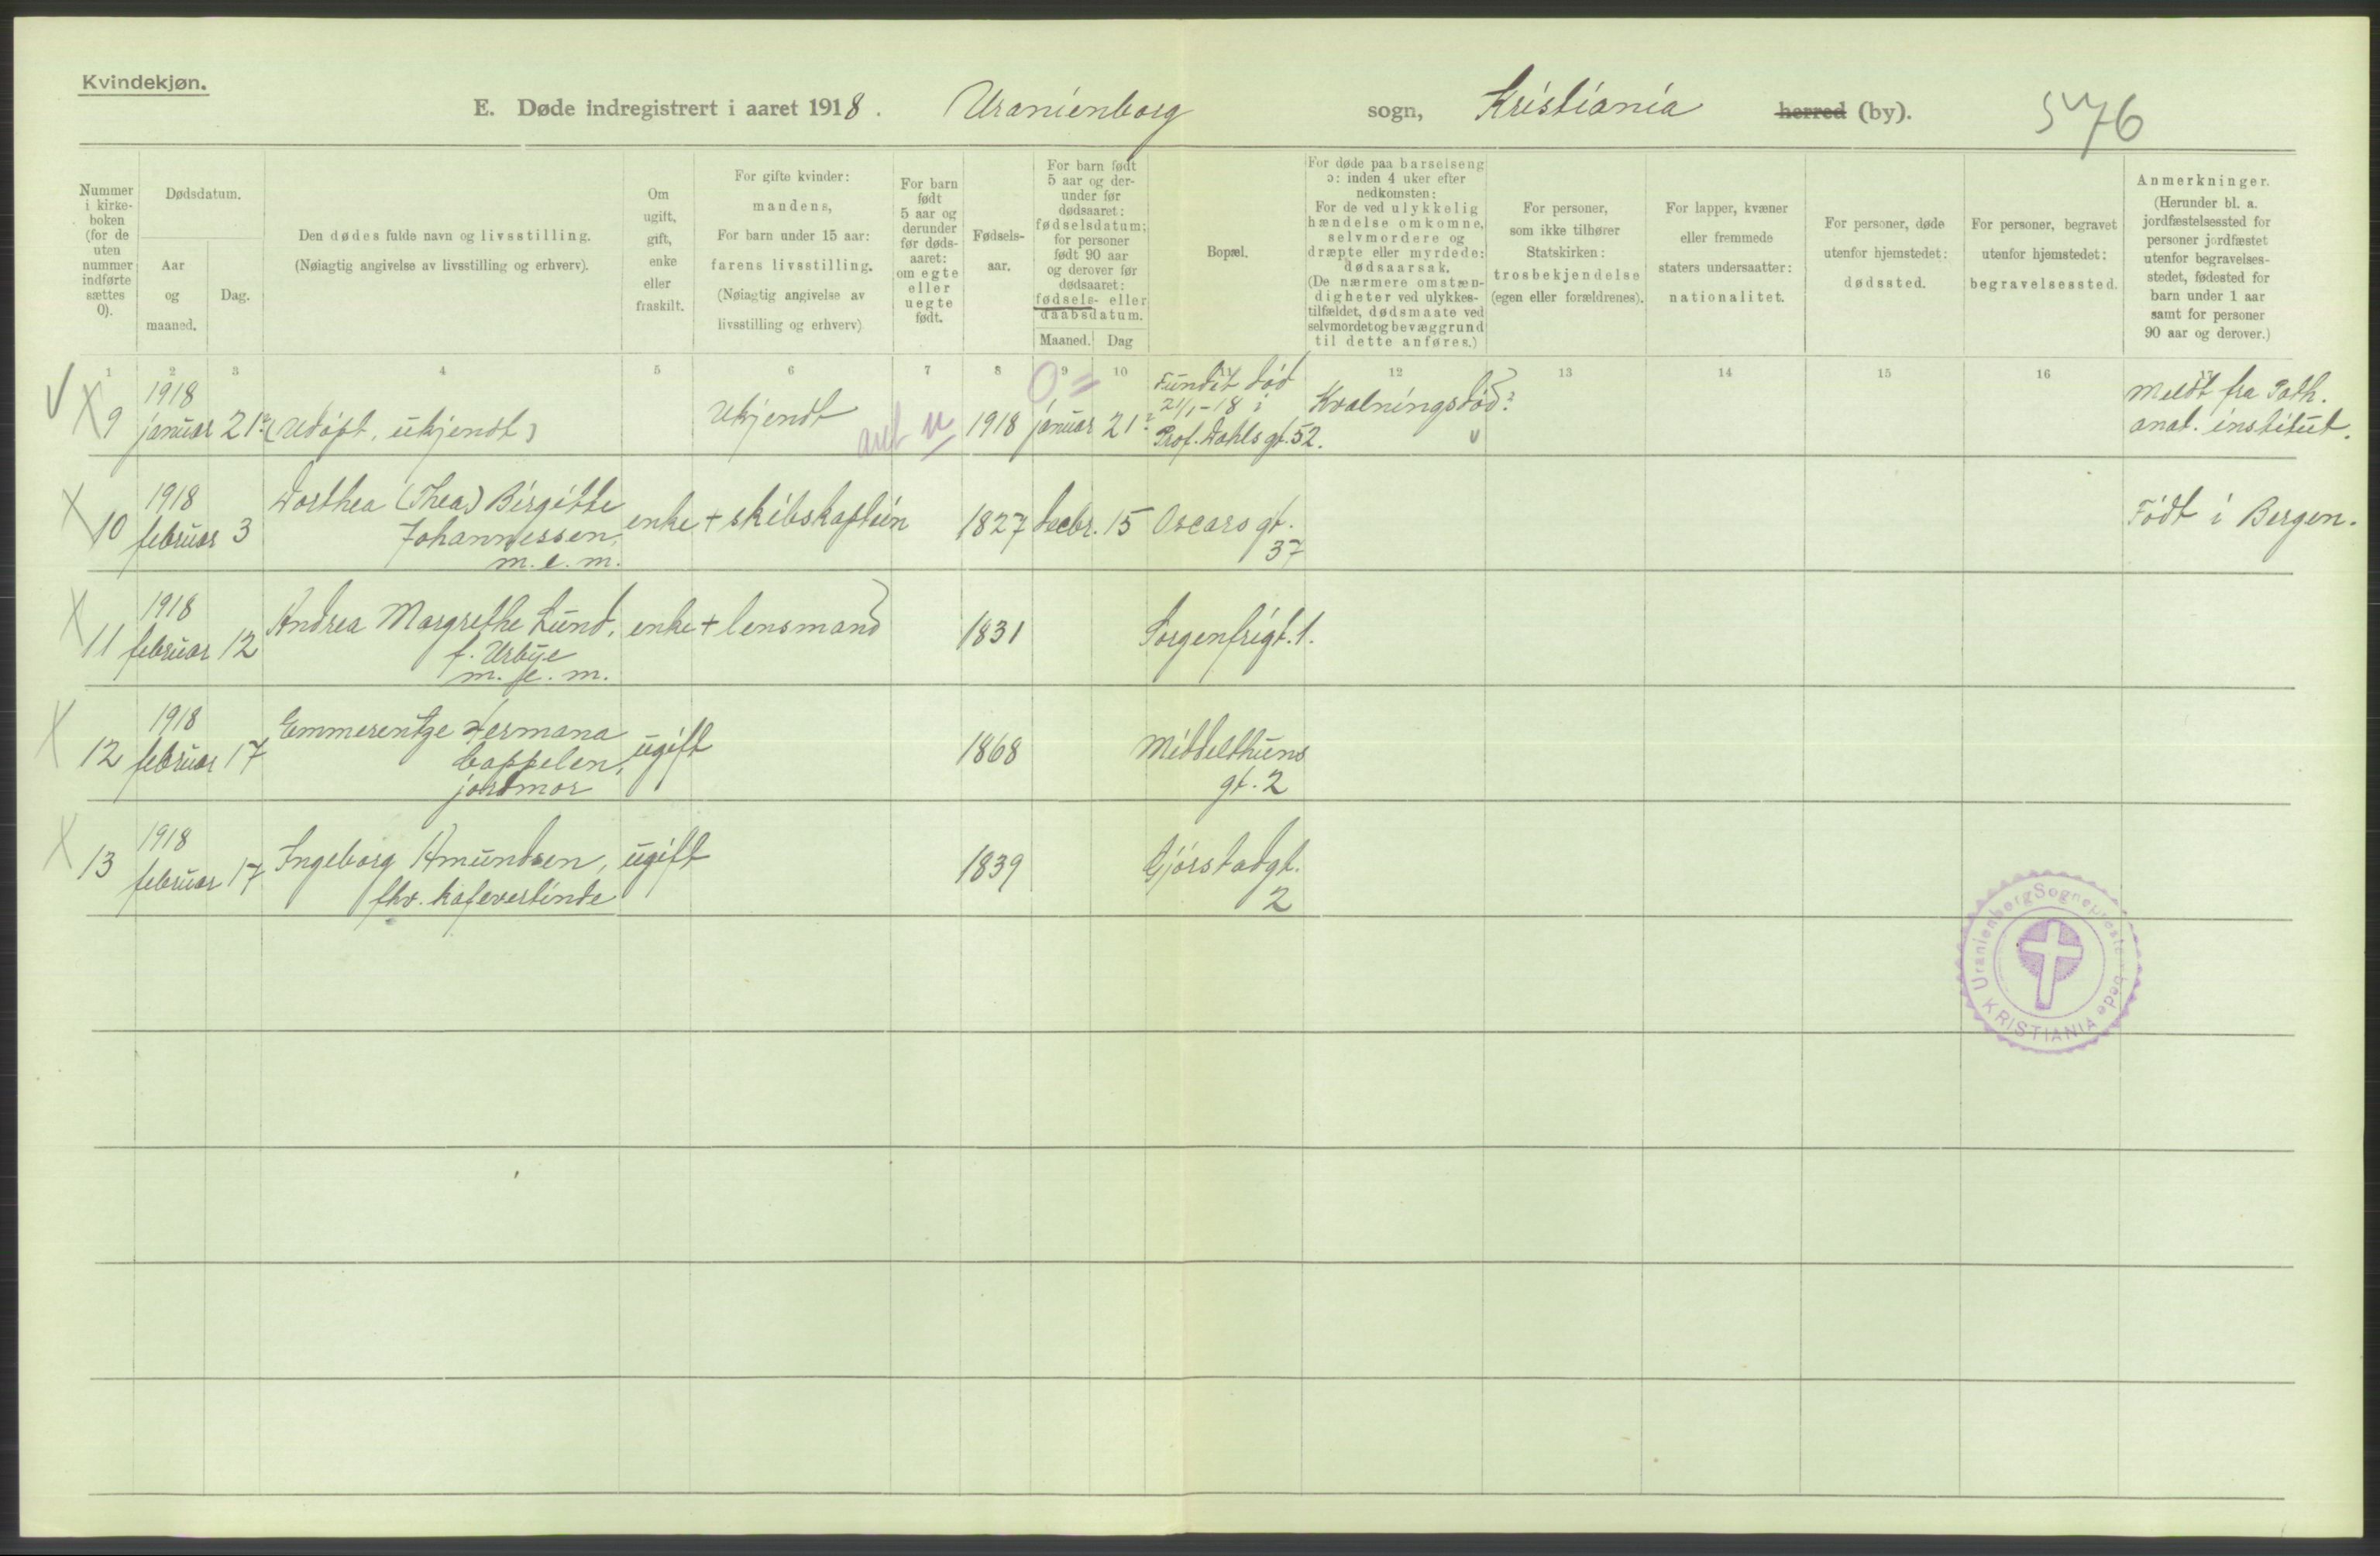 Kvindekjøn.
E. Døde indregistrert i aaret 1918. Uranienborg sogn, Kristiania herred (by). 576
Nummer i kirke- boken (for de uten nummer indførte sættes 0).
Dødsdatum.
Aar og maaned.
Dag.
Den dødes fulde navn og livsstilling.
(Nøiagtig angivelse av livsstilling og erhverv).
Om ugift, gift, enke eller fraskilt.
For gifte kvinder:
mandens,
For barn under 15 aar:
farens livsstilling.
(Nøiagtig angivelse av
livsstilling og erhverv)
For barn født 5 aar og derunder før døds- aaret: om egte eller uegte født.
Fødsels- aar.
For barn født 5 aar og der- under før dødsaaret: fødselsdatum; for personer født 90 aar og derover før dødsaaret: fødsels- eller daabsdatum.
Maaned. Dag
Bopæl.
For døde paa barselseng
ɔ: inden 4 uker efter
nedkomsten:
For de ved ulykkelig
hændelse omkomne,
selvmordere og
dræpte eller myrdede:
dødsaarsak.
(De nærmere omstæn-
digheter ved ulykkes-
tilfældet, dødsmaate ved
selvmord et og bevæggrund
til dette anføres.)
For personer,
som ikke tilhører
Statskirken:
trosbekjendelse
(egen eller forældrenes).
For lapper, kvæner
eller fremmede
staters undersaatter:
nationalitet.
For personer, døde
utenfor hjemstedet:
dødssted.
For personer, begravet
utenfor hjemstedet:
begravelsessted.
Anmerkninger.
(Herunder bl. a.
jordfæstelsessted for
personer jordfæstet
utenfor begravelses-
stedet, fødested for
barn under 1 aar
samt for personer
90 aar og derover.)
1 2 3 4 5 6 7 8 9 10 11 12 13 14 15 16 17
9 1918 januar 21? (Udøpt, ukjendt) Ukjendt ant u 1918 januar 21? Fundet død 21/1-18 i Prof. Dahls gt. 52. Kvælningsdød? Meldt fra Path. anat. institut.
10 1918 februar 3 Dorthea (Thea) Birgitte Johannessen, m. e. m. enke + skibskaptein 1827 decbr. 15 Oscars gt. 37 Født i Bergen.
11 1918 februar 12 Andrea Margrethe Lund, f. Urbye m. e. m. enke + lensmand 1831 Sorgenfrigt. 1.
12 1918 februar 17 Emmerentze Hermana Cappelen, jordmor ugift 1868 Middelthuns gt. 2
13 1918 februar 17 Ingeborg Amundsen, fhv. kafevertinde ugift 1839 Gjørstadgt. 2
Uranienborg Sogneprestembede
KRISTIANIA